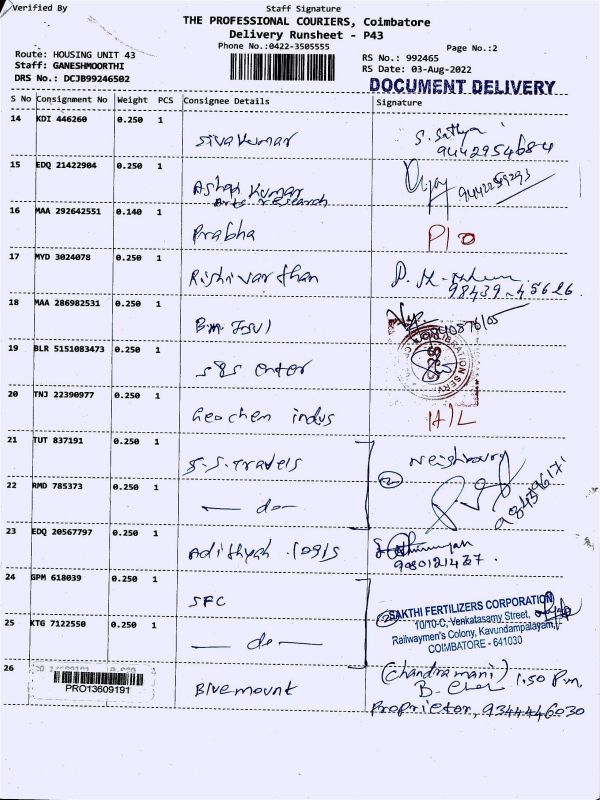 Verified By
Staff Signature
THE PROFESSIONAL COURIERS, Coimbatore
Delivery Runsheet - P43
Phone No.:0422-3505555
Page No.:2
Route: HOUSING UNIT 43
Staff: GANESHMOORTHI
DRS No.: DCJB99246502
RS No.: 992465
RS Date: 03-Aug-2022
DOCUMENT DELIVERY
S No Consignment No Weight PCS Consignee Details Signature
14 KDI 446260 0.250 1
Sivakumar
S. Sathya
9442954684
15 EDQ 21422904 0.250 1
Ashok Kumar
Arts research
Vijay 9442259293
16 MAA 292642551 0.140 1
Prabha
P/o
17 MYD 3024078 0.250 1
Rishivarthan
98439-45626
18 MAA 286982531 0.250 1
19 BLR 5151083473 0.250 1
S&S
20 TNJ 22390977 0.250 1
Geochem indus
H/L
21 TUT 837191 0.250 1
S.S. Travels
Neighbourg
22 RMD 785373 0.250 1
— do —
23 EDQ 20567797 0.250 1
Adithyah logis
9080121427
24 GPM 618039 0.250 1
SFC
SAKTHI FERTILIZERS CORPORATION
10/10-C, Venkatasamy Street,
Railwaymen's Colony, Kavundampalayam,
COIMBATORE - 641030
25 KTG 7122550 0.250 1
— do —
26
PRO13609191
Bluemount
(Chandramani) 1.50 P.m.
Proprietor, 9344446030